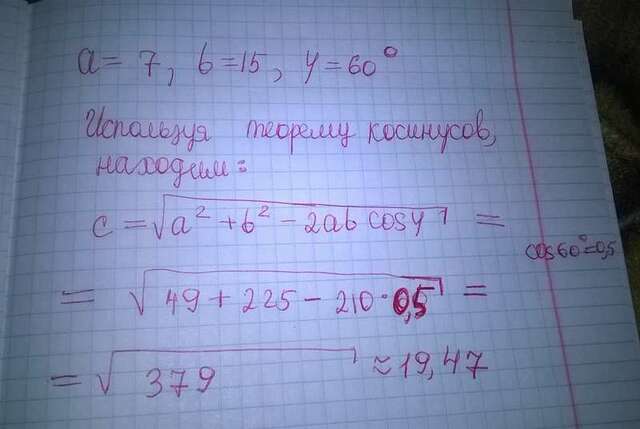 a = 7, b = 15, γ = 60°
Используя теорему косинусов,
находим:
c = √a² + b² − 2ab cosγ =
cos60° = 0,5
= √49 + 225 − 210 · 0,5 =
= √379 ≈ 19,47